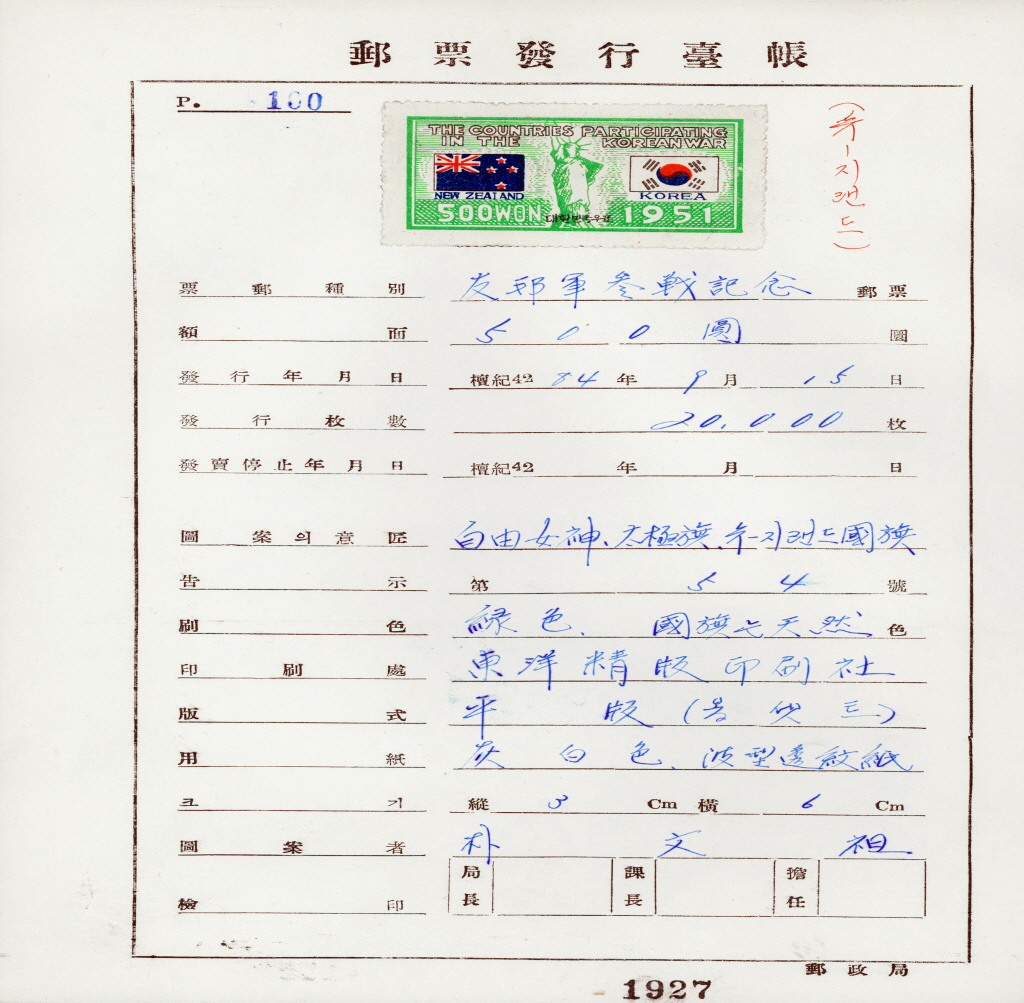 郵票發行臺帳
P. 100
(뉴-지랜드)
THE COUNTRIES PARTICIPATING
IN THE KOREAN WAR
NEW ZEALAND KOREA
500WON 대한민국우표 1951
票郵種別 友邦軍參戰記念 郵票
額面 500圓 圜
發行年月日 檀紀4284年9月15日
發行枚數 20,000枚
發賣停止年月日 檀紀42 年 月 日
圖案의意匠 自由女神、太極旗、뉴-지랜드國旗
告示 第54號
刷色 綠色、國旗는天然色
印刷處 東洋精版印刷社
版式 平版
用紙 灰白色、波型透紋紙
크기 縱3Cm橫6Cm
圖案者 朴文祖
檢印 局長 課長 擔任
郵政局
1927